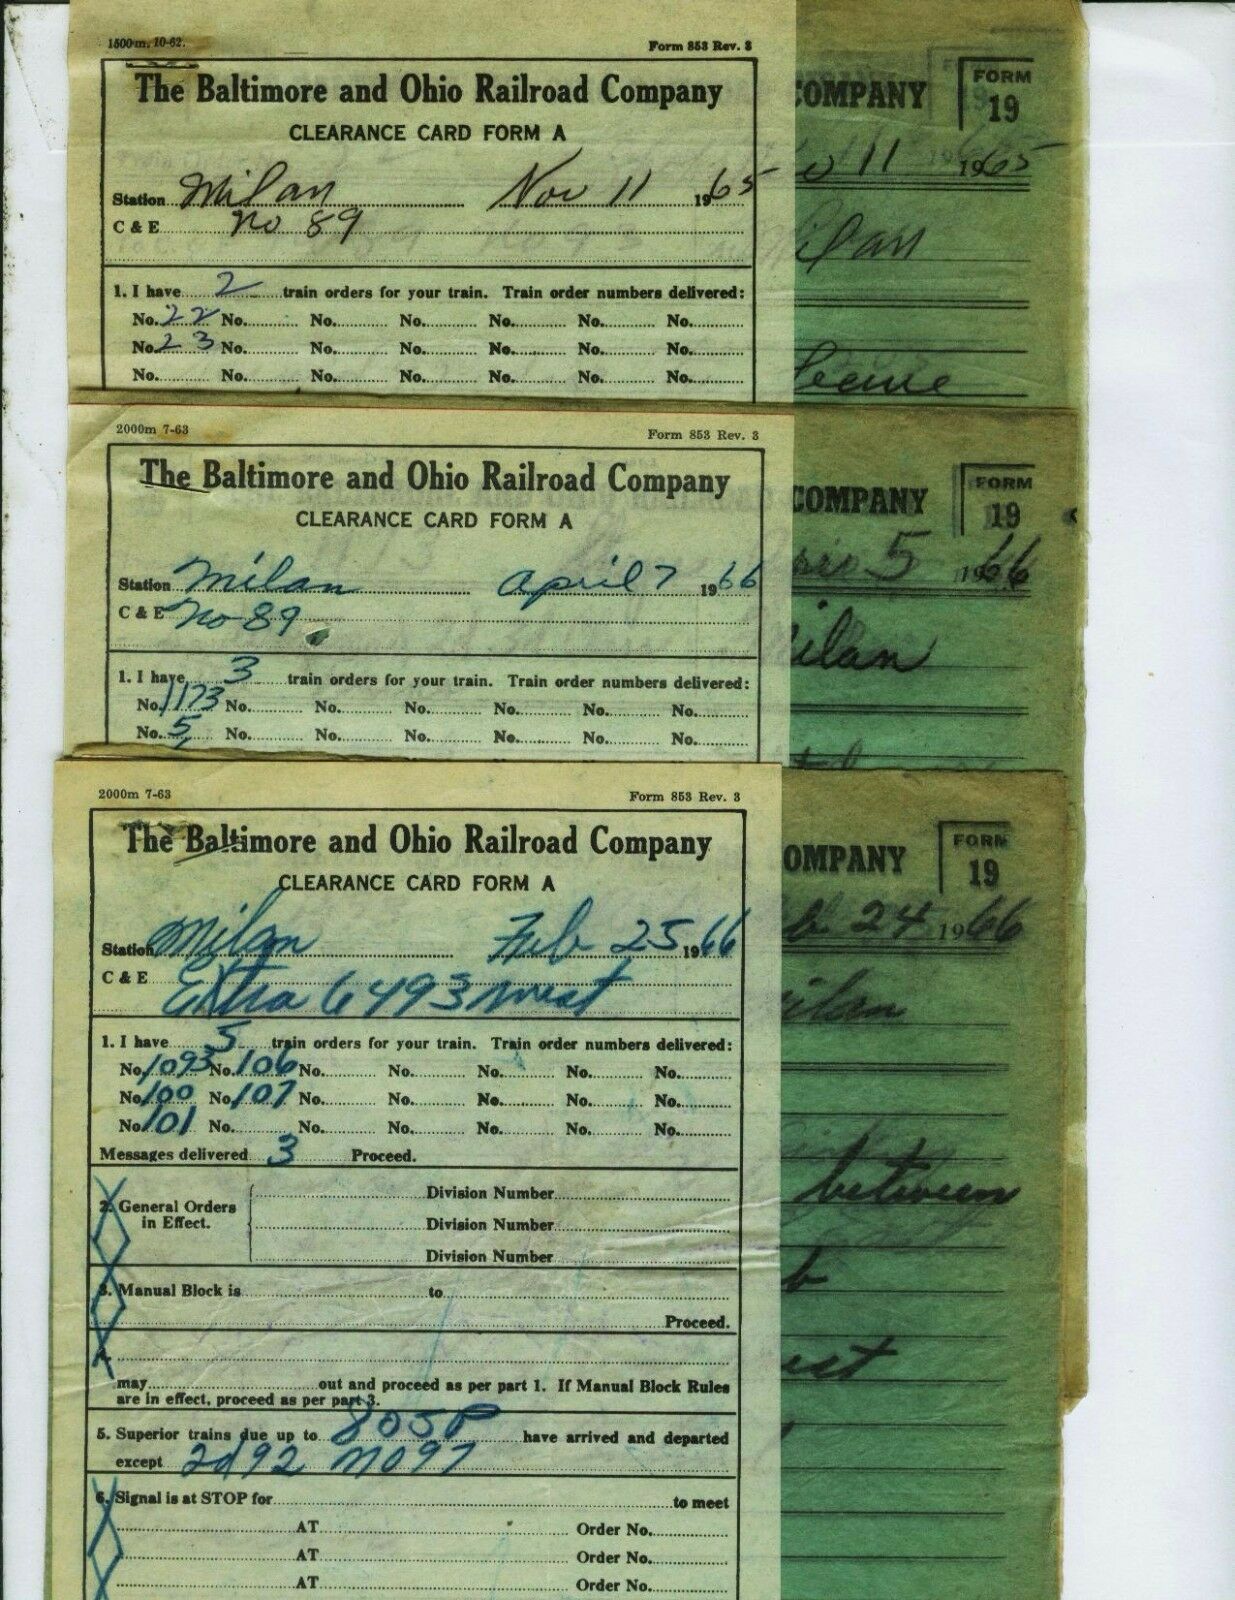 1500m. 10-62. Form 853 Rev. 3
The Baltimore and Ohio Railroad Company
CLEARANCE CARD FORM A
Station Milan Nov 11 1965
C & E No 89
1. I have 2 train orders for your train. Train order numbers delivered:
No. 22 No. No. No. No. No. No.
No. 23 No. No. No. No. No. No.
No. No. No. No. No. No. No.
COMPANY FORM 19
11 1965
ilan
leave
2000m 7-63 Form 853 Rev. 3
The Baltimore and Ohio Railroad Company
CLEARANCE CARD FORM A
Station Milan April 7 1966
C & E No 89
1. I have 3 train orders for your train. Train order numbers delivered:
No. 1173 No. No. No. No. No. No.
No. 5 No. No. No. No. No. No.
COMPANY FORM 19
5 1966
ilan
2000m 7-63 Form 853 Rev. 3
The Baltimore and Ohio Railroad Company
CLEARANCE CARD FORM A
Station Milan Feb 25 1966
C & E Extra 6493 West
1. I have 5 train orders for your train. Train order numbers delivered:
No. 1093 No. 106 No. No. No. No. No.
No. 100 No. 107 No. No. No. No. No.
No. 101 No. No. No. No. No. No.
Messages delivered 3 Proceed.
2. General Orders in Effect. Division Number
Division Number
Division Number
3. Manual Block is to
Proceed.
4.
may out and proceed as per part 1. If Manual Block Rules
are in effect, proceed as per part 3.
5. Superior trains due up to 805P have arrived and departed
except 2d92 No97
6. Signal is at STOP for to meet
AT Order No.
AT Order No.
AT Order No.
OMPANY FORM 19
eb 24 1966
ilan
between
est